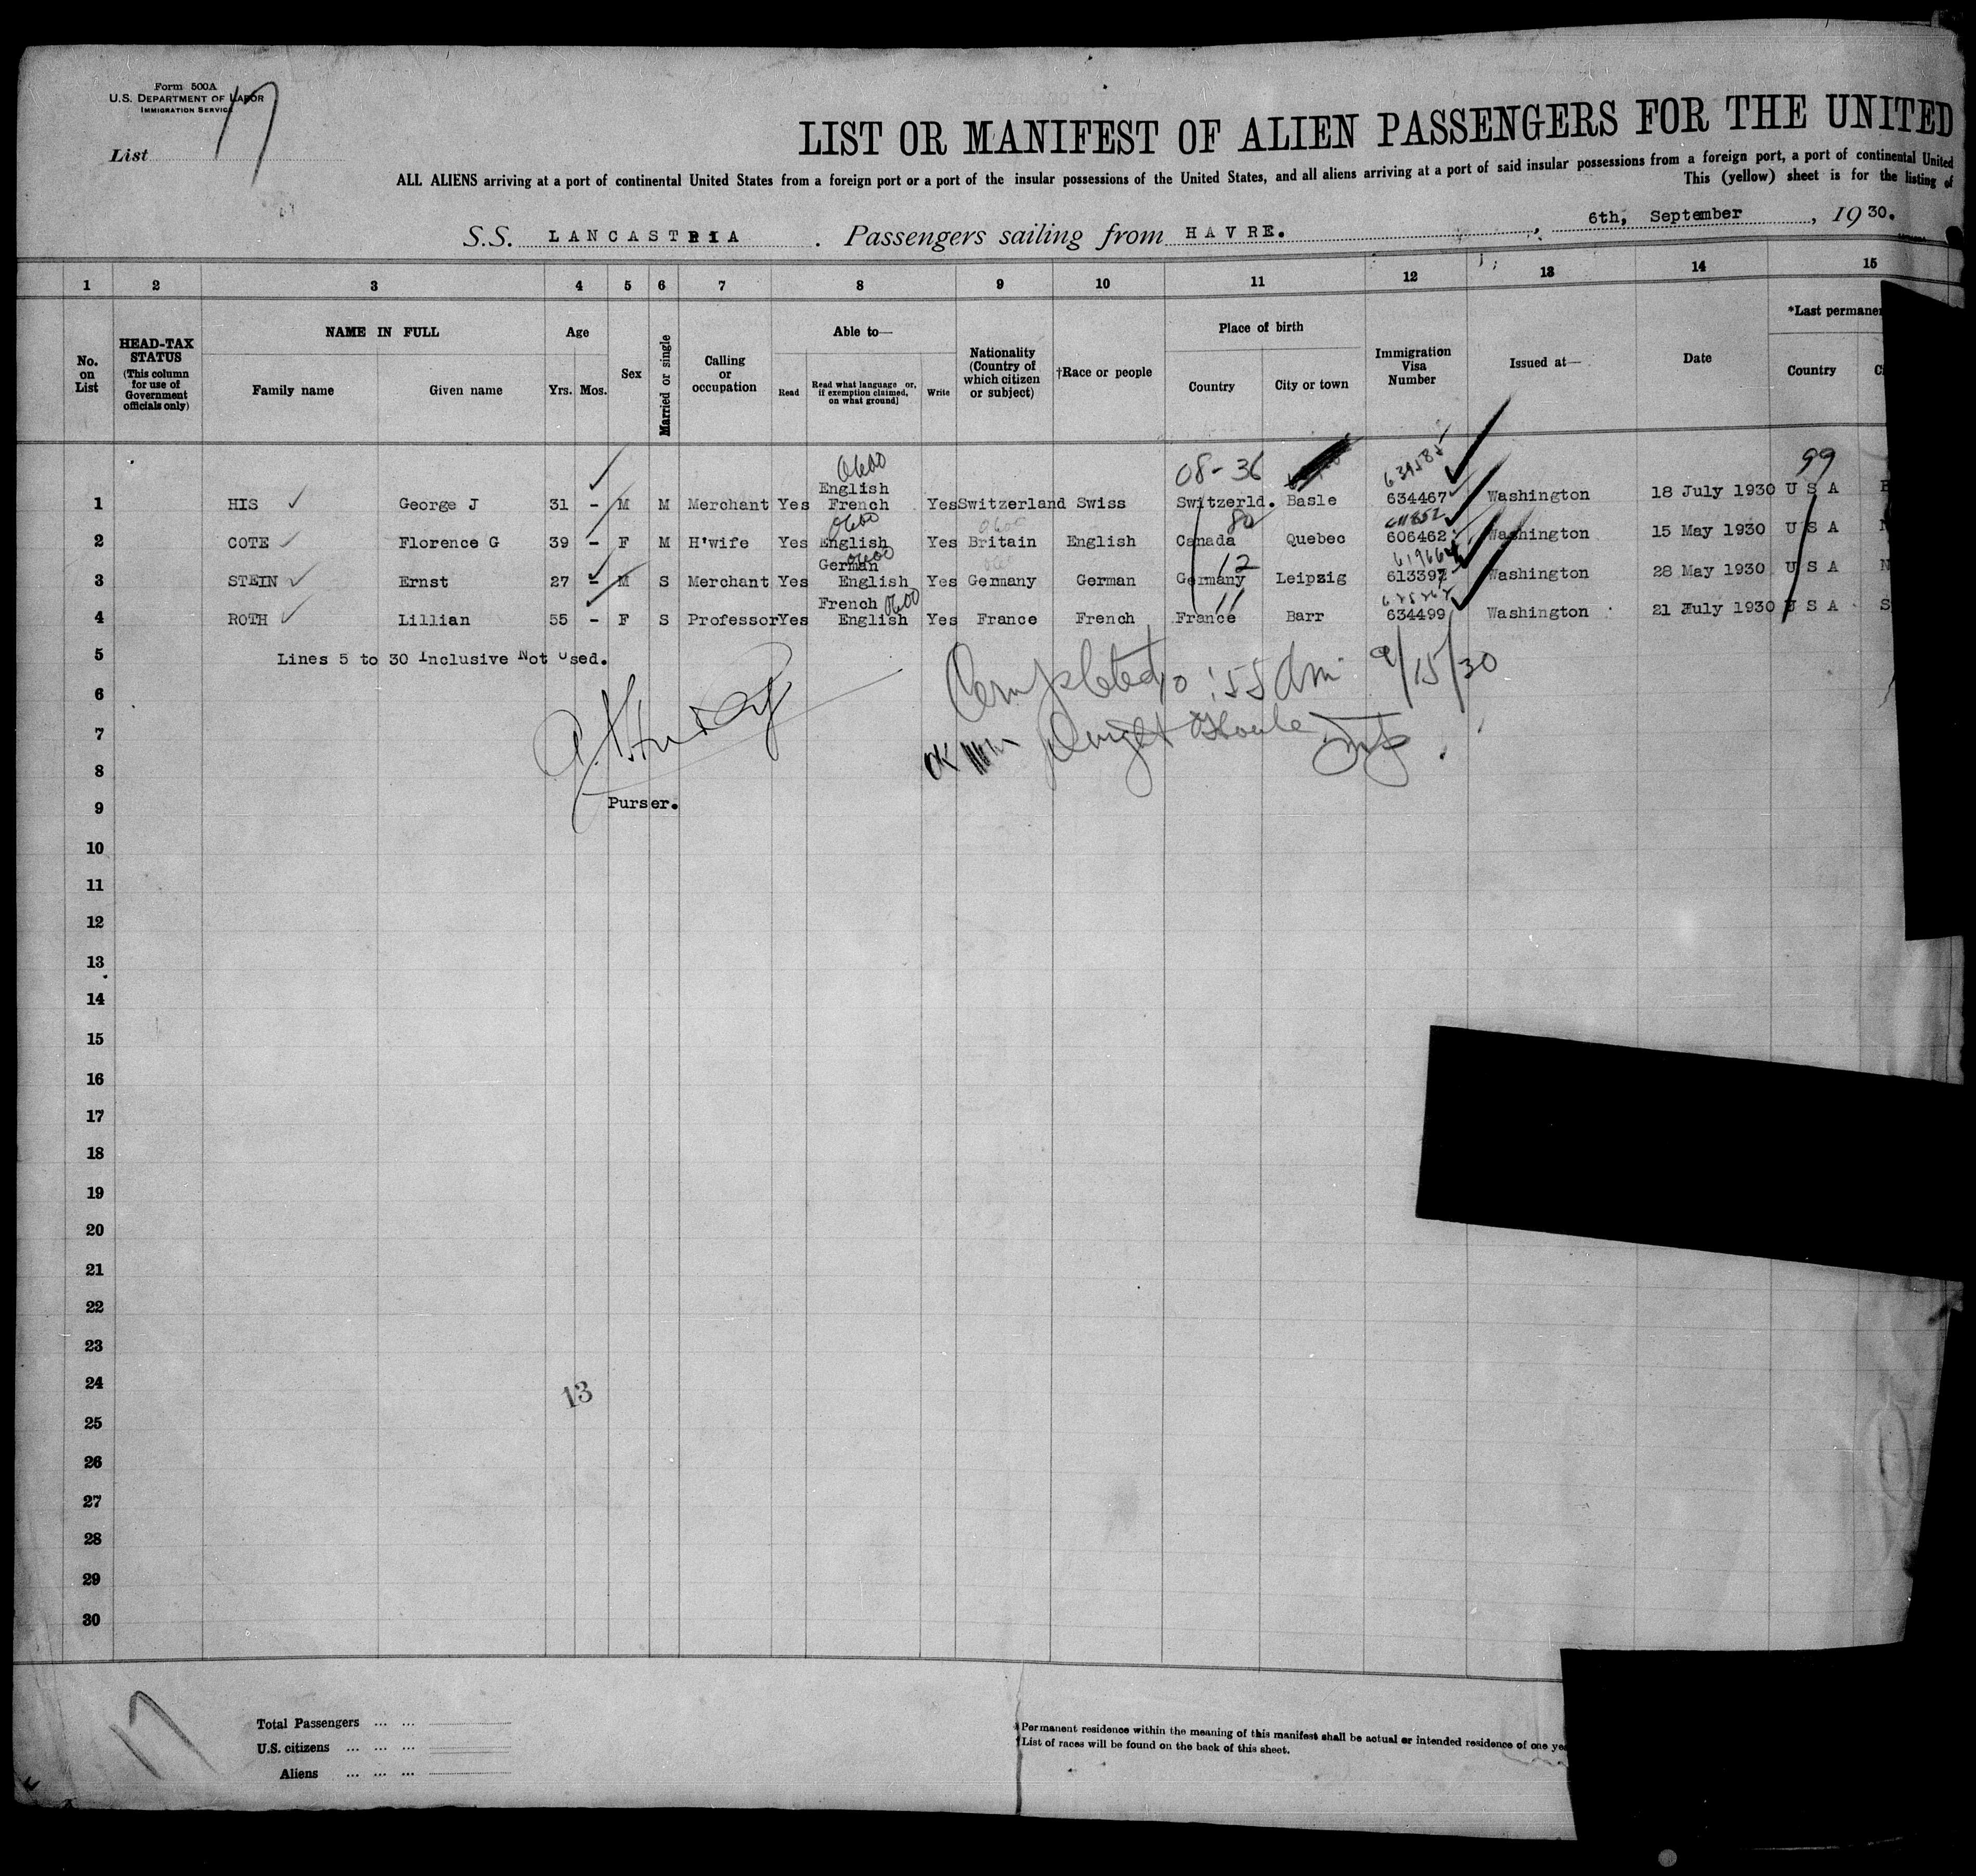 Form 500A
U.S. DEPARTMENT OF LABOR
IMMIGRATION SERVICE
List 17
LIST OR MANIFEST OF ALIEN PASSENGERS FOR THE UNITED
ALL ALIENS arriving at a port of continental United States from a foreign port or a port of the insular possessions of the United States, and all aliens arriving at a port of said insular possessions from a foreign port, a port of continental United
This (yellow) sheet is for the listing of
S.S. LANCASTRIA . Passengers sailing from HAVRE. , 6th, September , 1930.
1 2 3 4 5 6 7 8 9 10 11 12 13 14 15
No. on List
HEAD-TAX STATUS (This column for use of Government officials only)
NAME IN FULL
Family name Given name
Age
Yrs. Mos.
Sex
Married or single
Calling or occupation
Able to—
Read Read what language or, if exemption claimed, on what ground] Write
Nationality (Country of which citizen or subject)
†Race or people
Place of birth
Country City or town
Immigration Visa Number
Issued at—
Date
*Last permane
Country C
0600 08-36 639585 99
1 HIS George J 31 - M M Merchant Yes English French Yes Switzerland Swiss Switzerld. Basle 634467 Washington 18 July 1930 U S A
0600 80 611852
2 COTE Florence G 39 - F M H'wife Yes English Yes Britain English Canada Quebec 606462 Washington 15 May 1930 U S A
0600 12
3 STEIN Ernst 27 - M S Merchant Yes German English Yes Germany German Germany Leipzig 613397 Washington 28 May 1930 U S A N
0600 11
4 ROTH Lillian 55 - F S Professor Yes French English Yes France French France Barr 634499 Washington 21 July 1930 U S A S
5 Lines 5 to 30 Inclusive Not Used.
Completed 10:55 Am 9/15/30
6
7
OK Dwight
8
9 Purser.
10
11
12
13
14
15
16
17
18
19
20
21
22
23
24
13
25
26
27
28
29
30
17
Total Passengers ... ...
U.S. citizens ... ... ...
Aliens ... ... ...
*Permanent residence within the meaning of this manifest shall be actual or intended residence of one ye
†List of races will be found on the back of this sheet.